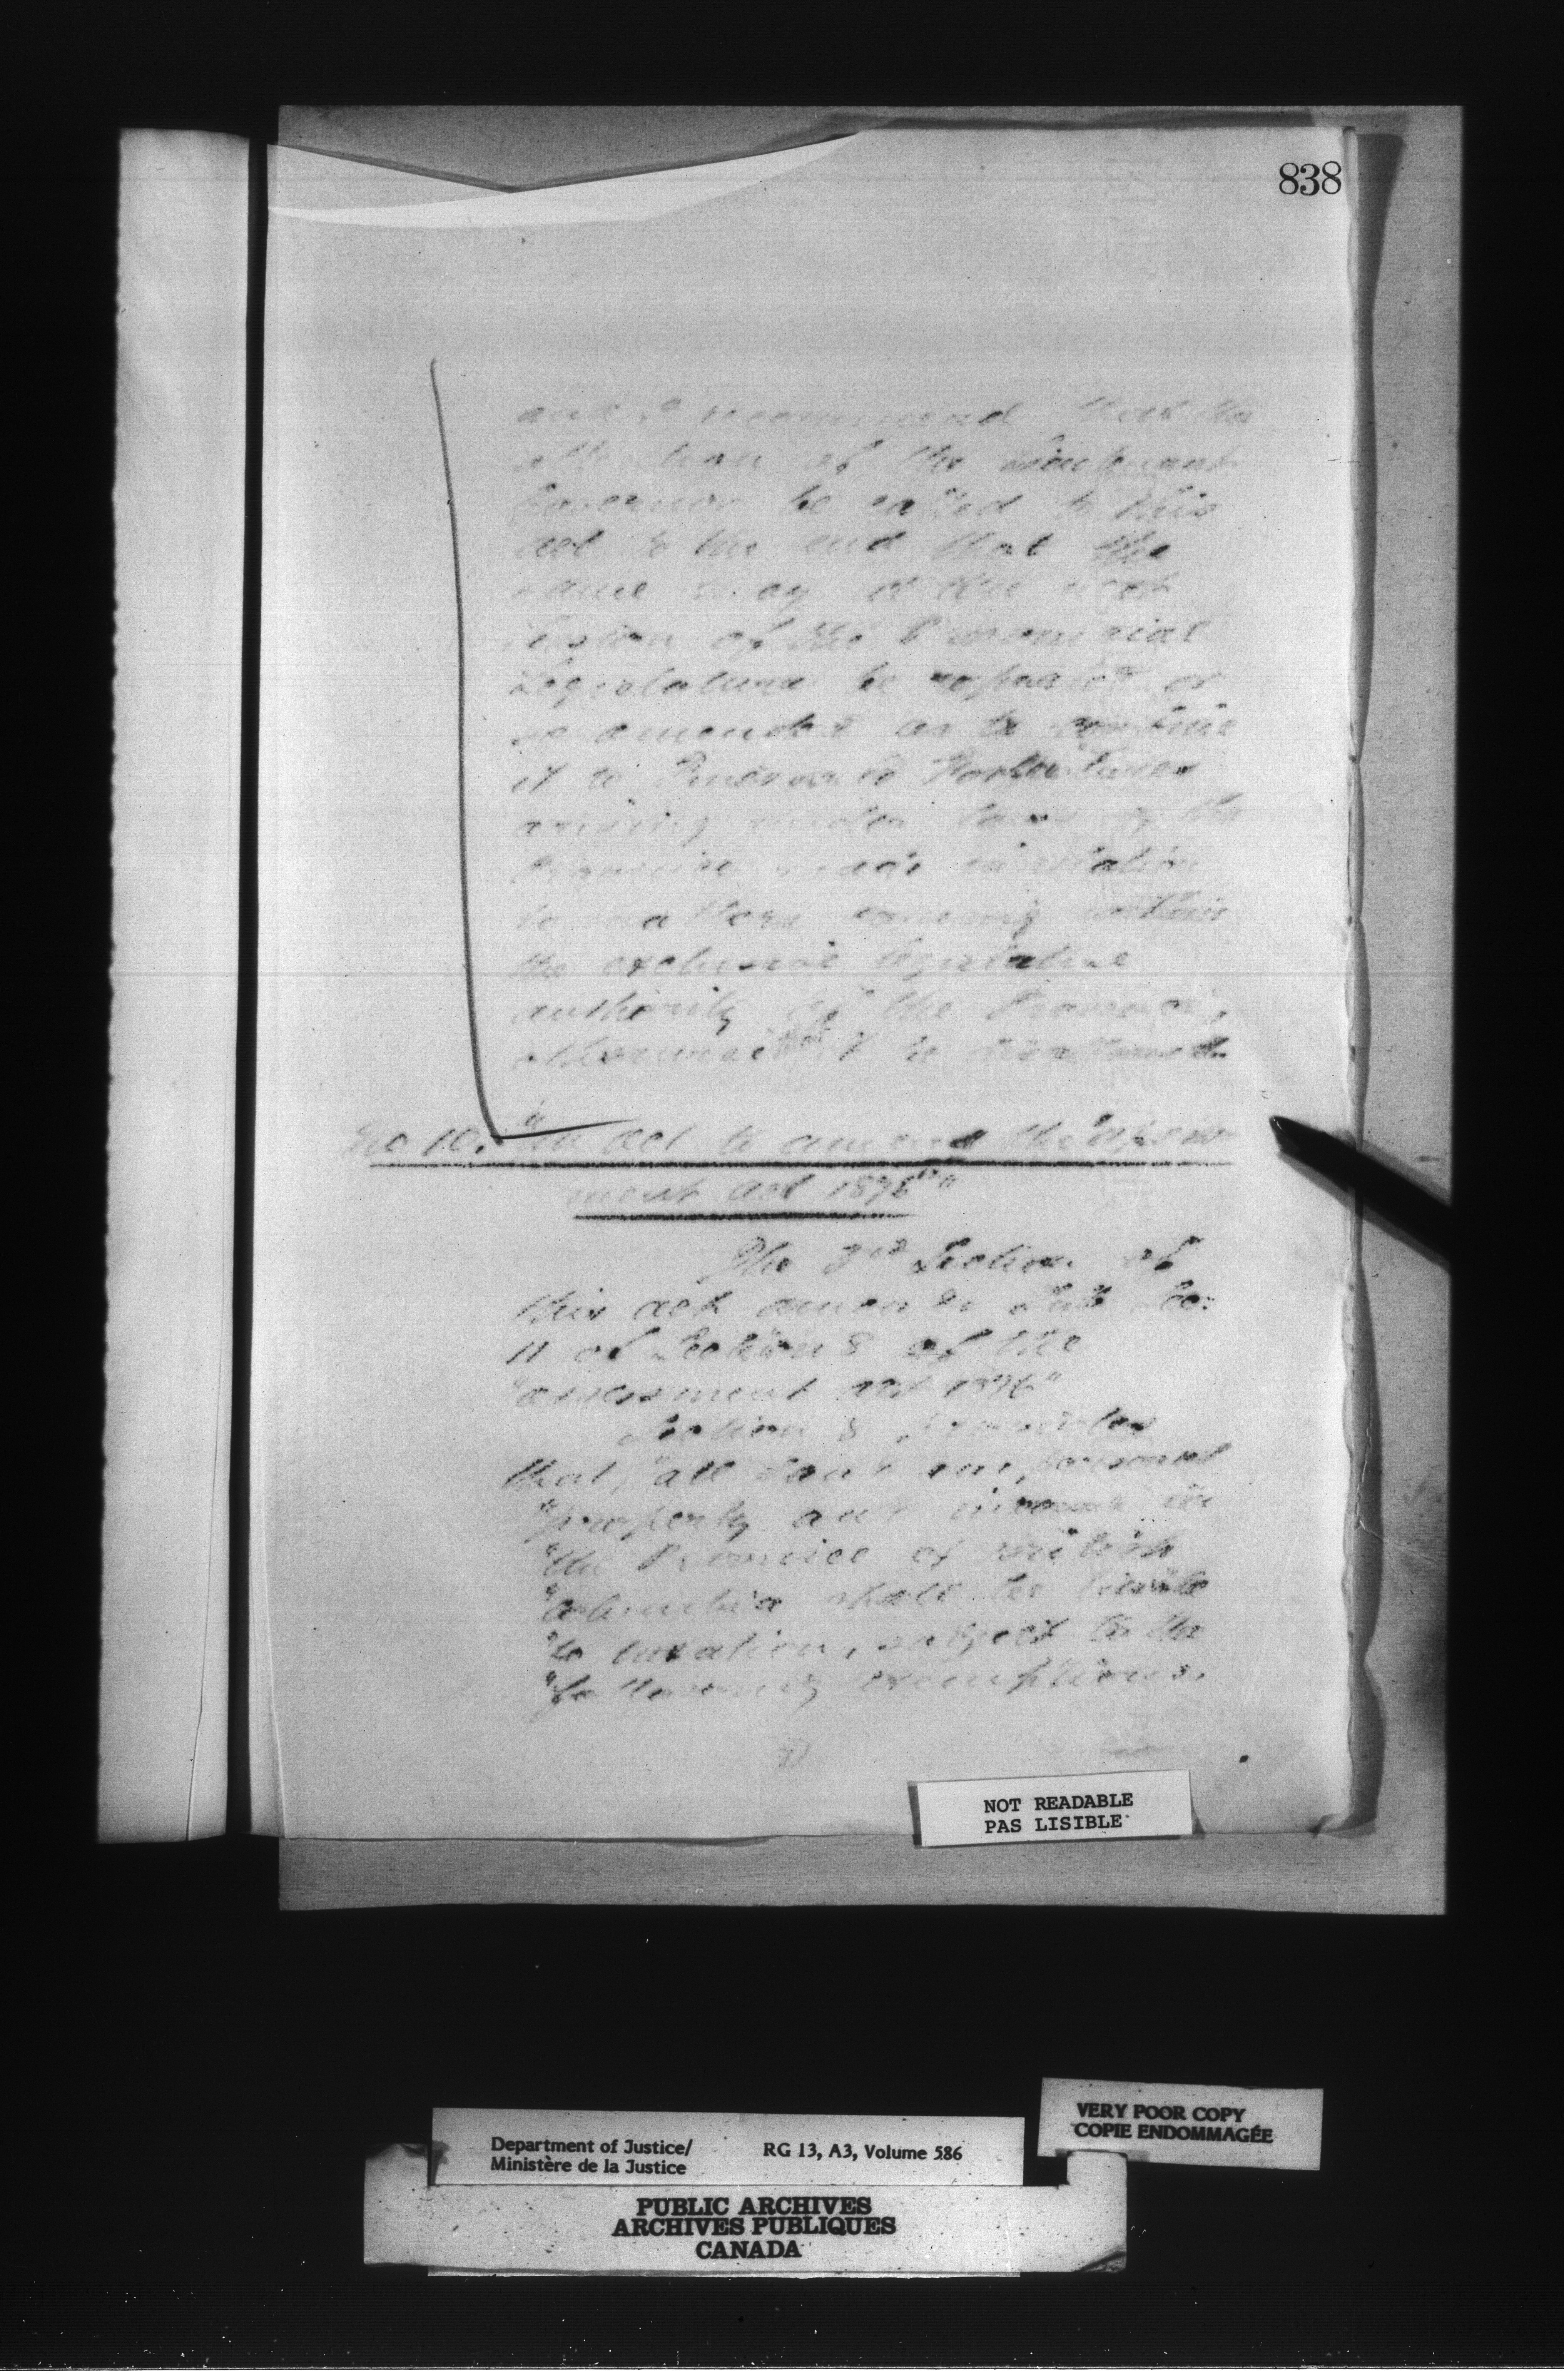 838
and I recommend that the
attention of the Lieutenant
Governor be called to this
act to the end that the
same may at the next
Session of the Provincial
Legislature be repealed or
so amended as to confine
it to Fines and Forfeitures
arising under laws of the
Province made in relation
to matters coming within
the exclusive legislative
authority of the Province,
otherwise that it be disallowed.
No 10. "An act to amend the "Assess-
ment Act 1876""
The 3rd Section of
this act amends Sub Sec:
11 of Section 8 of the
"assessment act 1876"
Section 8 provides
that, "all land and personal
"property and income in
"the Province of British
"Columbia shall be liable
"to taxation, subject to the
"following exemptions.
NOT READABLE
PAS LISIBLE
VERY POOR COPY
COPIE ENDOMMAGÉE
Department of Justice/
Ministère de la Justice
RG 13, A3, Volume 586
PUBLIC ARCHIVES
ARCHIVES PUBLIQUES
CANADA